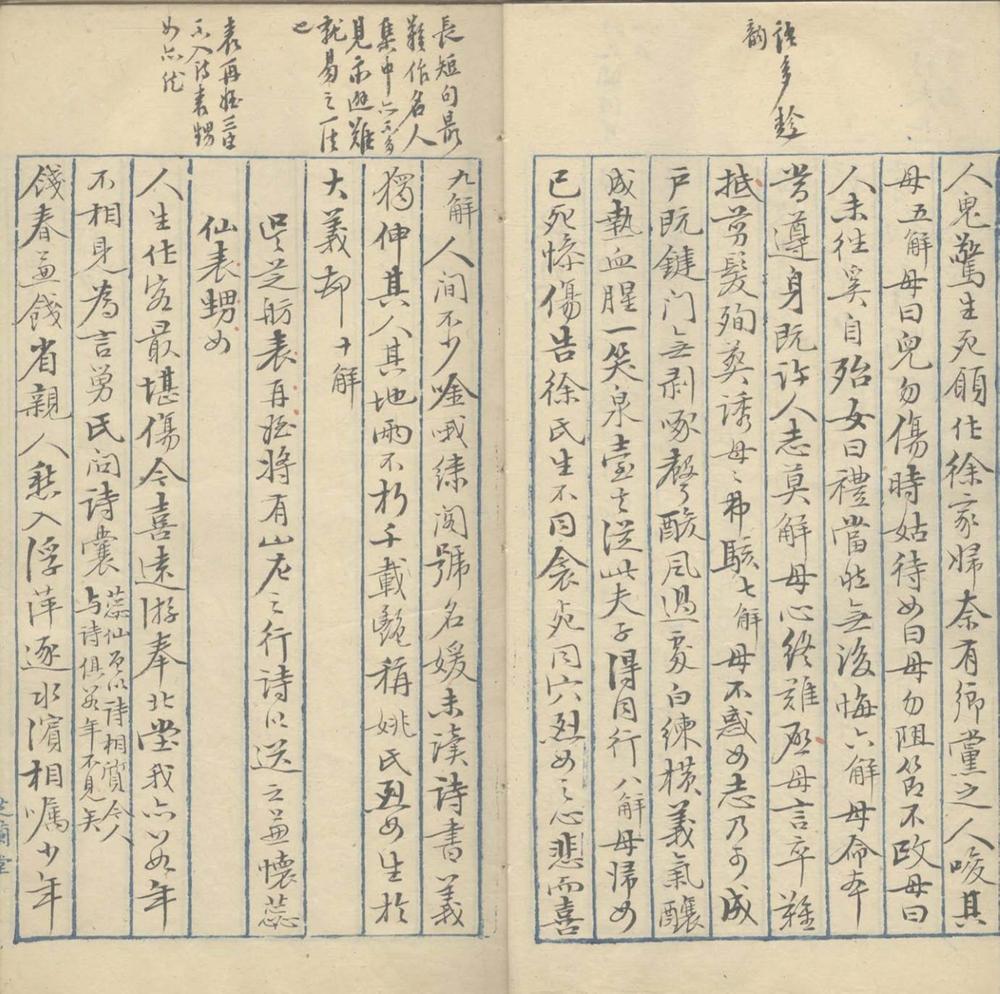 語多趁
韵
人鬼驚生死願作徐家婦奈有鄉黨之人唆其
母五解母曰兒勿傷時姑待女曰母勿阻節不改母曰
人未往奚自殆女曰禮當然無後悔六解母命本
當遵身既許人志莫解母心終難母言卒難
抵剪髮殉葬誘母々弗駭七解母不惑女志乃可成
戶既鍵门無剥啄聲酸风過處白練橫義氣釀
成熱血腥一笑泉臺去從此夫子得同行八解母歸女
已死慘傷告徐氏生不同衾死同穴烈女之心悲而喜
長短句最
難作名人
集中亦不多
見示避難
就易之一法
也
表再姪三字
不入詩表甥
女亦然
九解人间不少唫哦繡阁號名媛未讀詩書義
獨伸其人其地兩不朽千載艷稱姚氏烈女生於
大義却十解
送芝舫表再姪將有山左之行詩以送之並懷蕊
仙表甥女
人生作客最堪傷今喜遠游奉北堂我亦公年
不相見為言舅氏问詩囊蕊仙以詩相賞令人与詩俱年不見矣
餞春並餞省親人愁入浮萍逐水濱相囑少年
芝蘭堂